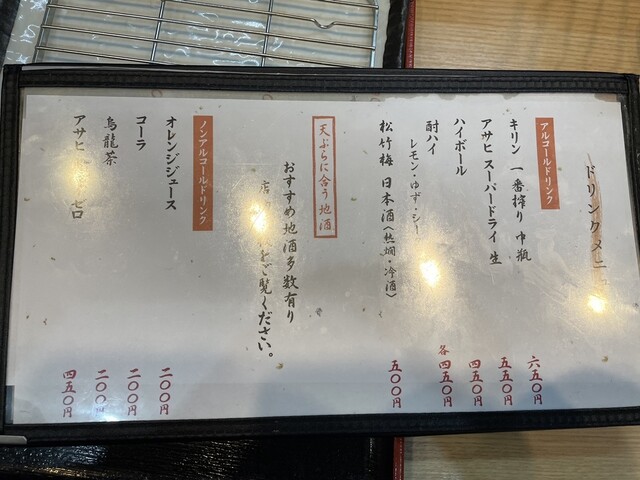 ドリンクメニ
アルコールドリンク
キリン 一番搾り 中瓶 六五〇円
アサヒ スーパードライ 生 五五〇円
ハイボール 四五〇円
酎ハイ 各四五〇円
レモン・ゆず・シー
松竹梅 日本酒〈熱燗・冷酒〉 五〇〇円
天ぷらに合う地酒
おすすめ地酒多数有り
店 をご覧ください。
ノンアルコールドリンク
オレンジジュース 二〇〇円
コーラ 二〇〇円
烏龍茶 二〇〇円
アサヒ ゼロ 四五〇円